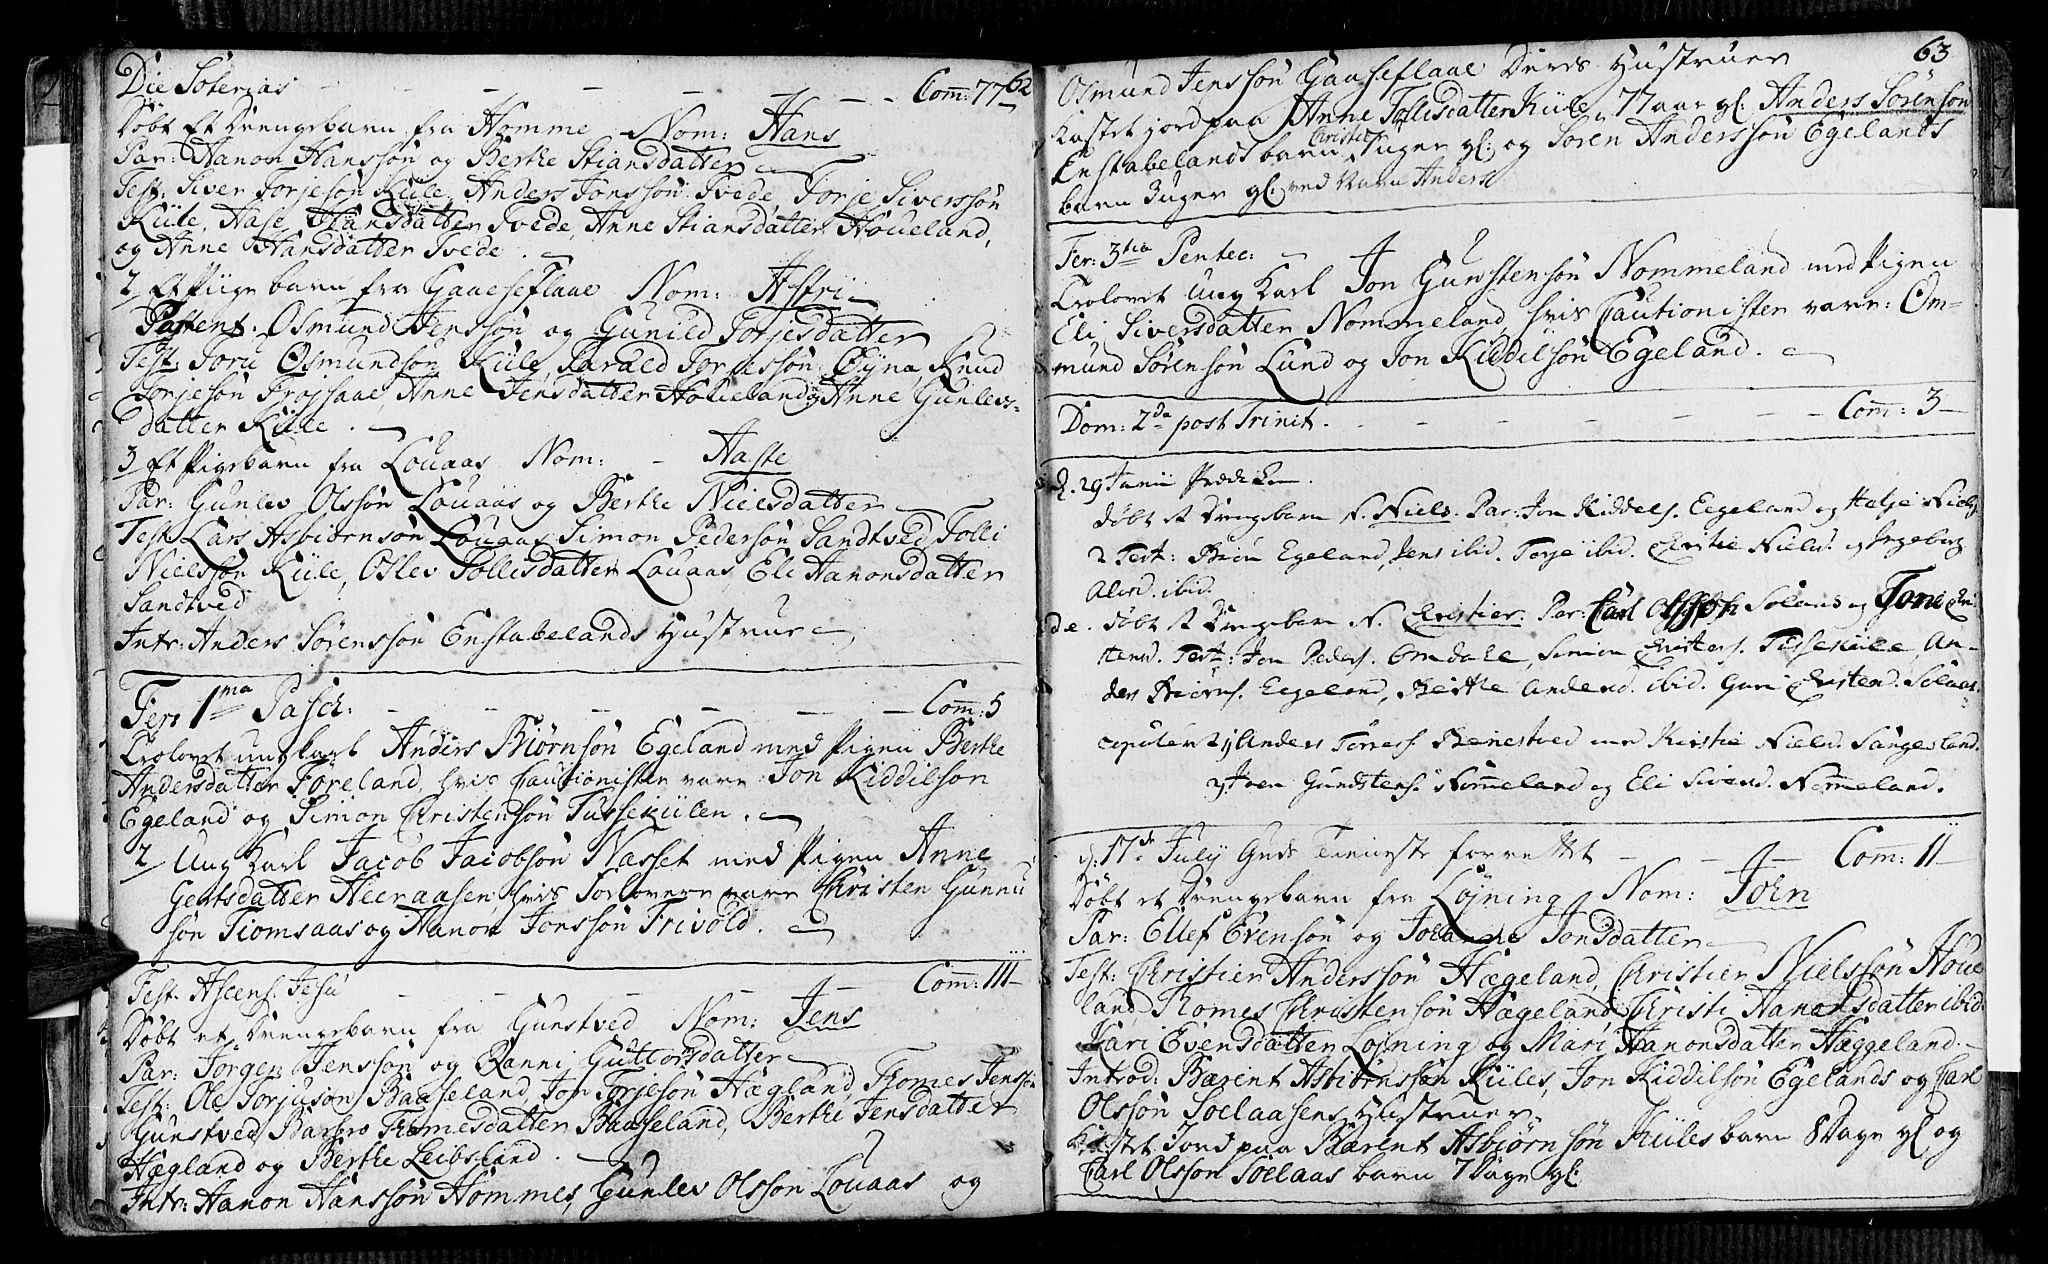 Die Soterias Com: 77 62
Døbt Et Drengebarn fra Homme Nom: Hans
Par: Hanon Hanssøn og Berthe Stiansdatter
Test: Siver Torjesøn Kiile, Anders Jonssøn Tvede, Torje Siverssøn
Kiile, Aase Hansdatter Tvede, Anne Stiansdatter Houeland,
og Anne Hansdatter Tvede.
2 Et Piige barn fra Gaaseflaae Nom: Asfri
Parent. Osmund Jenssøn og Gunild Torjesdatter
Test: Toru Osmundsøn Kiile, Harald Torjessøn Øÿna, Knud
Torjesøn Propsaae, Anne Jensdatter Houeland og Anne Gunlevs-
datter Kiile.
3 Et Pigebarn fra Louaas Nom: Aaste
Par: Gunlev Olssøn Louaas og Berthe Nielsdatter
Test: Lars Asbiørnsøn Louaas, Simon Pedersøn Sandtved, Tolli
Nielssøn Kiile, Oslev Tollisdatter Louaas, Eli Hanonsdatter
Sandtved
Intr: Anders Sørenssøn Enstabelands Hustrue
Fer: 1ma Pasch: Com: 5
Trolovet ungkarl Anders Biørnsøn Egeland med Pigen Berthe
Andersdatter Foreland, hvis Cautionister vare Jon Kiddilsøn
Egeland og Simon Christensøn Tussekiilen.
2 Ung Karl Jacob Jacobsøn Nasset med Pigen Anne
Gertsdatter Heeraasen, hvis Forlovere vare Christen Gunnu
søn Tiomsaas og Hanon Jonssøn Frivold.
Fest. Ascens. Jesu Com: 111
Døbt et Drengebarn fra Gunstved Nom: Jens
Par: Jørgen Jenssøn og Ranni Guttorsdatter
Test: Ole Torjusøn Baaseland, Jon Torjesøn Hægland, Thomes Jenssøn
Gunstved, Barbro Thomesdatter Baaseland, Berthe Jensdatter
Hægland og Berthe Leibsland.
Intr: Hanon Hanssøn Hommes, Gunlev Olsson Louaas og
63
Osmund Jenssøn Gaaseflaae Deres Hustruer
Kastet jord paa Anne Tollisdatter Kiile, 77 aar gl: Anders Sørensøn
Enstabelands barn Christen uger gl: og Søren Anderssøn Egelands
barn 3 uger gl: ved Navn Anders
Fer: 3tia Pentec:
Trolovet Ung Karl Jon Gunstensøn Nommeland med Pigen
Eli Siversdatter Nommeland, hvis Cautionister vare: Om-
mund Sørensøn Lund og Jon Kiddilsøn Egeland.
Dom: 2da post Trinit. Com: 3
D. 29 Junii Prædiken.
døbt et Drengebarn N. Niels. Par. Jon Kiddels. Eegeland og Helje Niels
2 Test: Biørn Egeland, Jens ibid. Torje ibid. Cristie Nielsd. og Ingeborg
Alesd. ibid.
døbt et Drengebarn N. Cristier. Par: Carl Olssøn Solaas og Tone Cri-
stensd. Test: Jon Peders. Omdale, Simon Cristens. Tissekiile, An-
ders Biørns. Eegeland, Berthe Andersd. ibid. Guri Cristensd. Solaas.
copuleret 1) Anders Torres. Beinestved med Kirstie Nielsd. Sangesland.
2) Joen Gundstens. Nommeland og Eli Siversd. Nommeland.
d: 17de July Guds Tieneste forrettet Com: 11
Døbt et Drengebarn fra Løyning Nom: Joen
Par: Ellef Evensøn og Johanne Jonsdatter
Test: Christier Anderssøn Hægeland, Christier Nielssøn Houe
land Thomes Christensøn Hægeland, Christi Hanonsdatter ibid
Kari Evensdatter Løyning og Mari Hanonsdatter Hæggeland.
Introd: Bærent Asbiørnssøn Kiiles, Jon Kiddilsøn Egelands og Carl
Olssøn Soelaasens Hustruer
Kastet Jord paa Bærent Asbjørnsøn Kiiles barn 8 Dage gl og
Carl Olsson Soelaas barn 7 Dage gl: